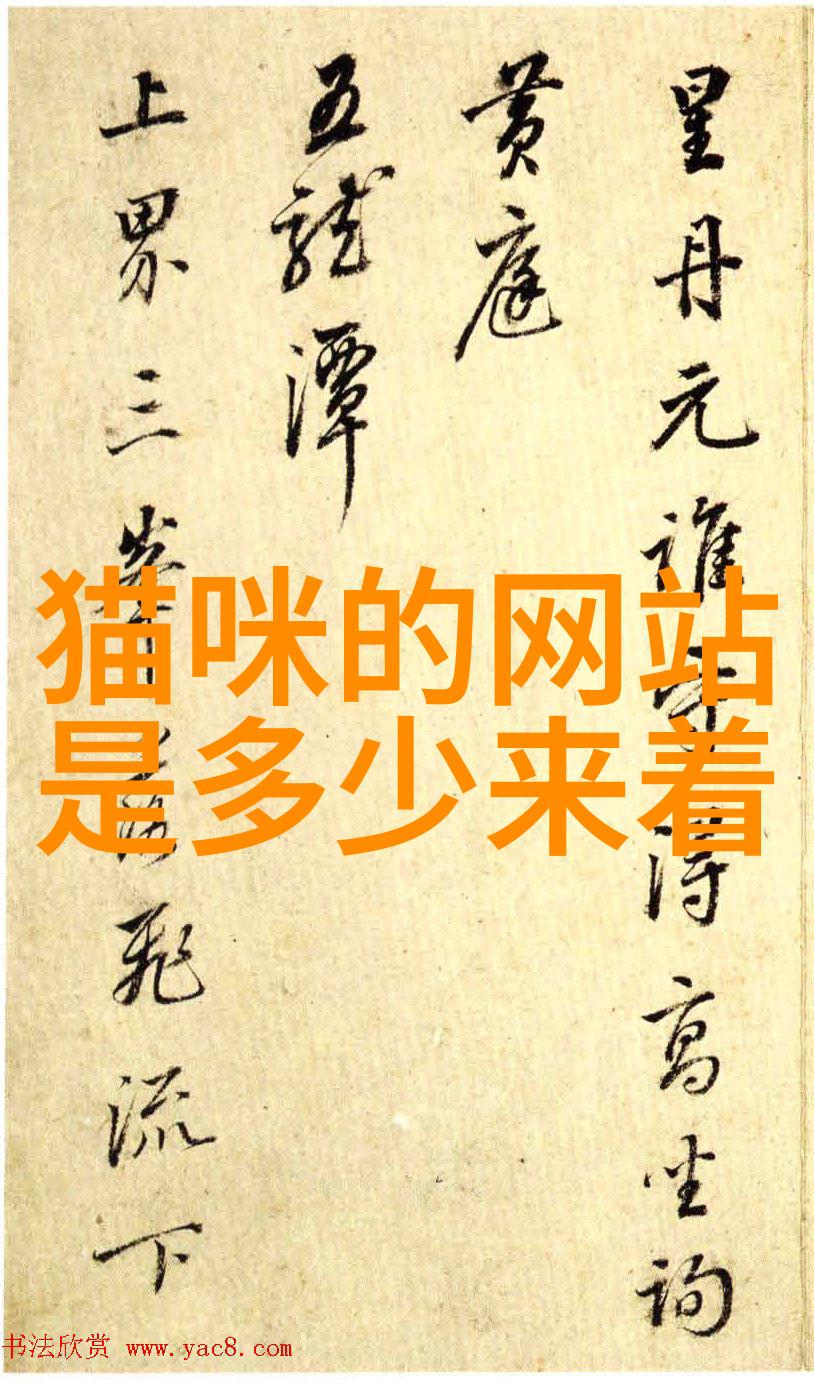 星丹元誰得高坐詢
黃庭
五龍潭
上界三飛流下
猫咪的网站
是多少来着
书法欣赏 www.yac8.com